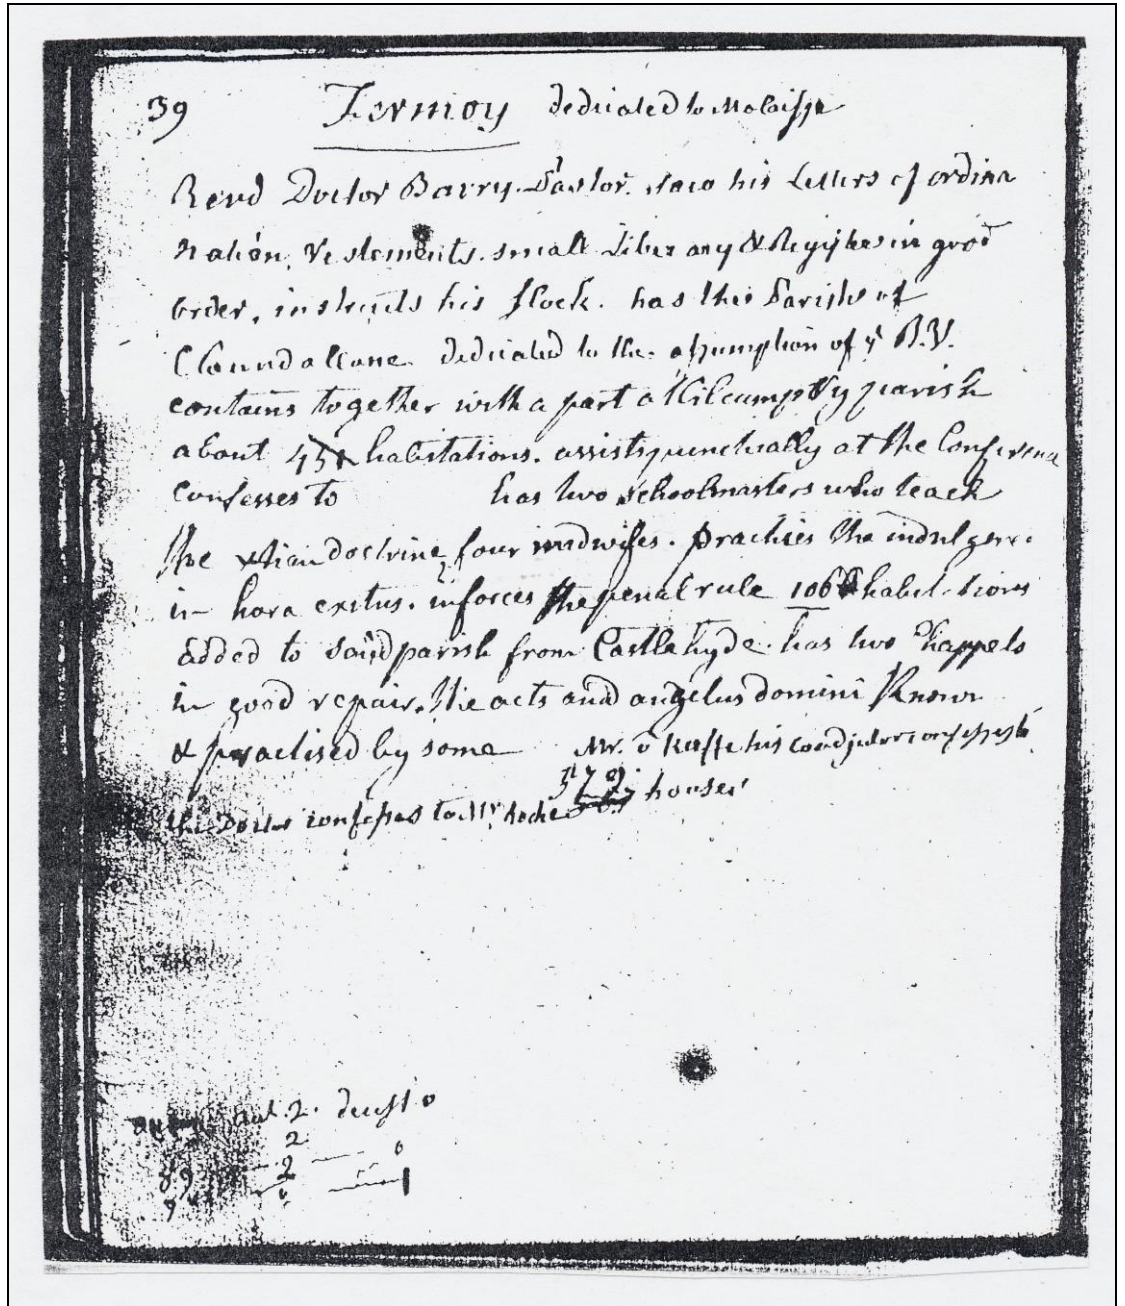 39 Fermoy dedicated to Molaisse
Revd Doctor Barry Pastor. saw his Letters of ordina
nation, Vestements. small Liberary & in good
order, instructs his flock. has the Parish of
Cloundallane dedicated to the assumption of ye B.V.
contains together with a part o parish
about habitations. assists punctually at the Conferenc
confesses to has two schoolmasters who teach
the xtian doctrine, four midwifes. practises the indulgence
in hora exitus. inforces the penal rule 106 habitations
added to said parish from Castlehyde. has two Chappels
in good repair. the acts and angelus domini Known
& practised by some Mr. o Keffe his coadjutor confesses to
572 houses
the Doctor confesses to Mr. Roche
aut. 2. 0
2
89 2 0